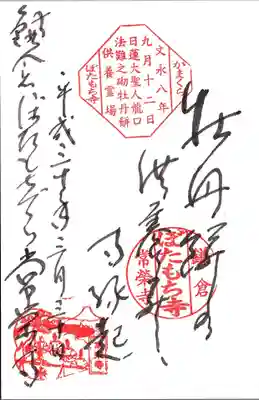 かまくら
文永八年
九月十二日
日蓮大聖人龍口
法難之砌牡丹餅
供養霊場
ぼたもち寺
牡丹餅の
供養
鎌倉
ぼたもち寺
常榮寺
平成三十年二月三十日
ぼたもちでら常栄寺